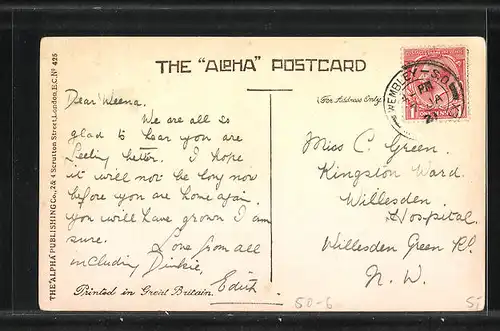 THE "ALPHA" POSTCARD
(For Address Only)
WEMBLEY - S.O.
PM
Dear Weena.
We are all so
glad to hear you are
feeling better. I hope
it will not be long now
before you are home again.
you will have grown I am
sure.
Love from all
including Dinkie,
Edith
Miss C. Green.
Kingston Ward.
Willesden
Hospital.
Willesden Green Rd.
N. W.
Printed in Great Britain.
THE "ALPHA" PUBLISHING Co., 2 & 4 Scrutton Street London, E.C. No 425
50-6